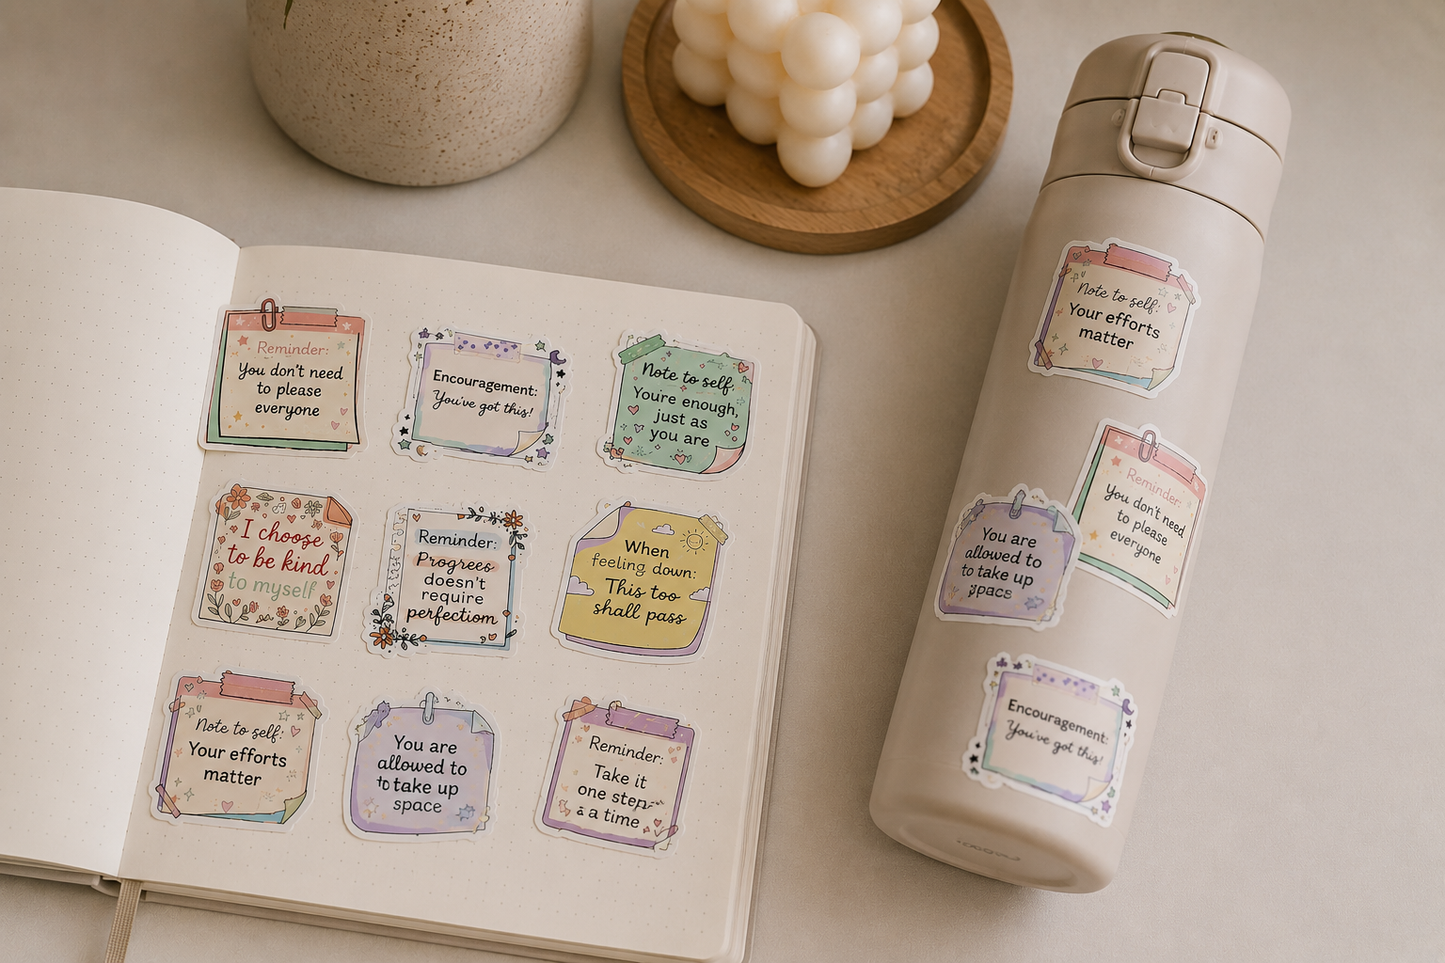 Reminder:
You don't need
to please
everyone
Encouragement:
You've got this!
Note to self:
Youre enough,
just as
you are
I choose
to be kind
to myself
Reminder:
Progrees
doesn't
require
perfection
When
feeling down:
This too
shall pass
Note to self:
Your efforts
matter
You are
allowed to
to take up
space
Reminder:
Take it
one step
a a time
Note to self:
Your efforts
matter
Reminder:
You don't need
to please
everyone
You are
allowed to
to take up
space
Encouragement:
You've got this!